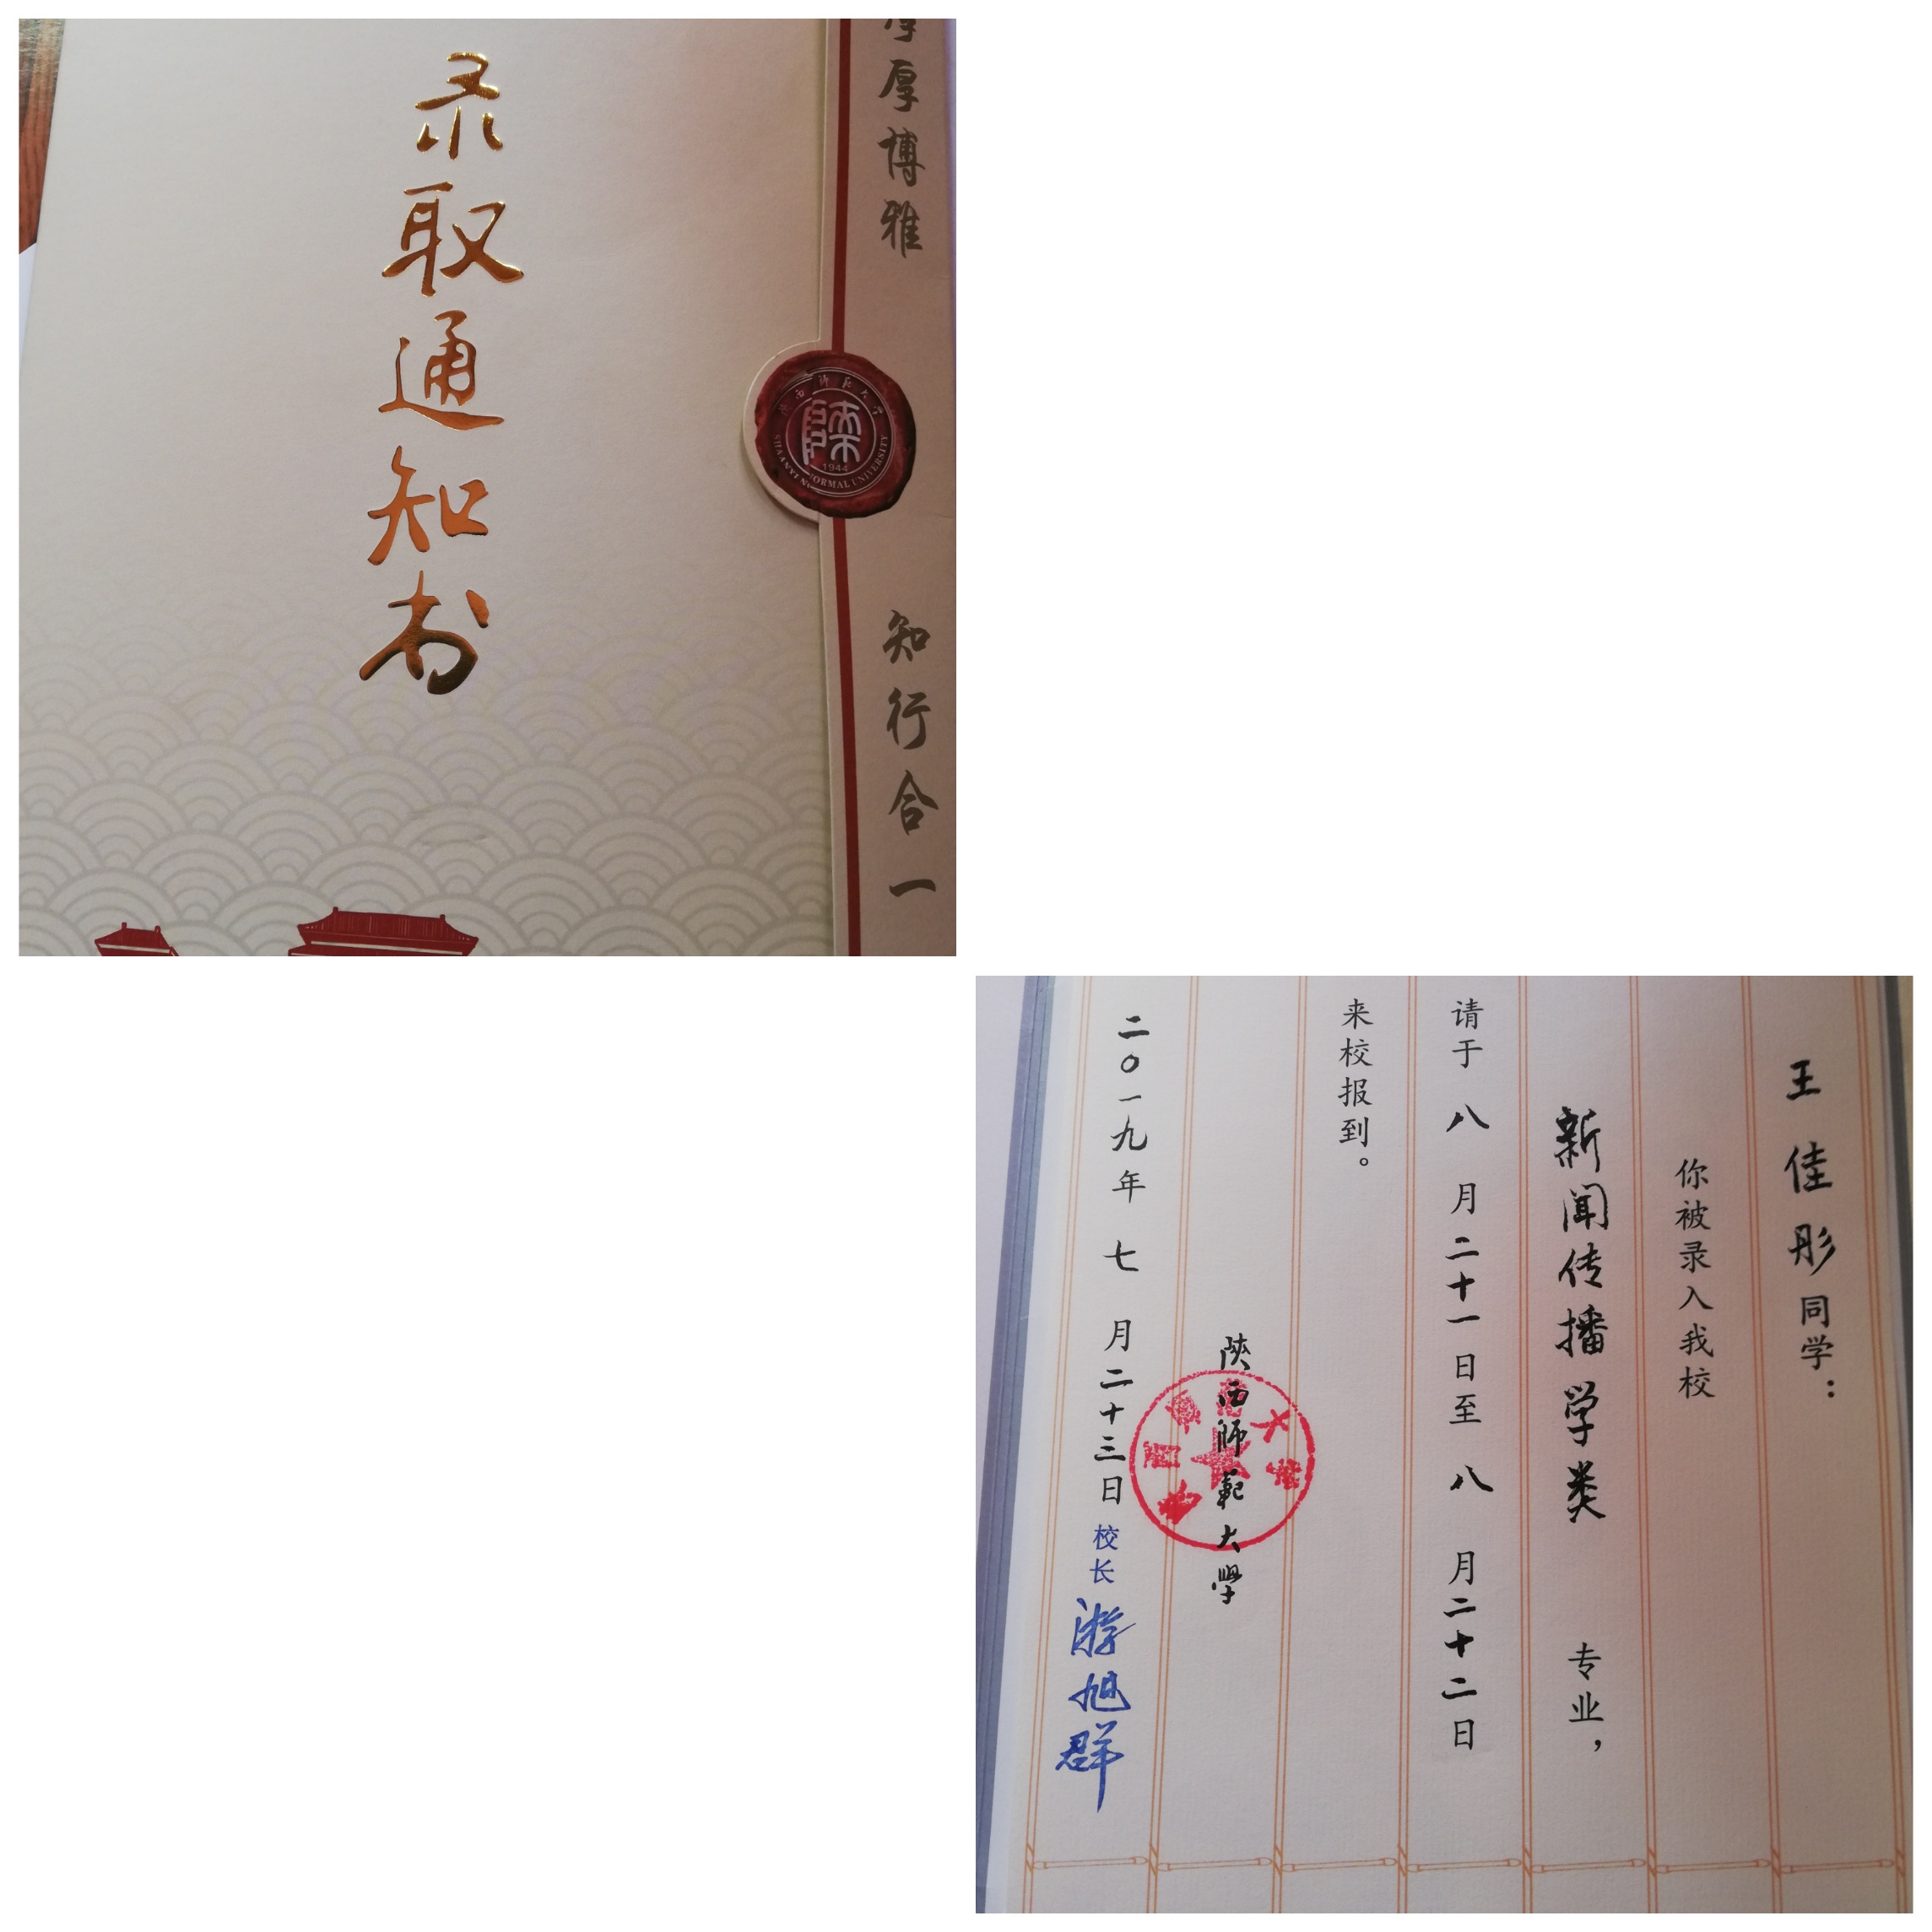 录取通知书
厚博雅
知行合一
陕西师范大学
陕
1944
SHAANXI NORMAL UNIVERSITY
王佳彤同学：
你被录入我校
新闻传播学类 专业，
请于八月二十一日至八月二十二日
来校报到。
陝西師範大學
二〇一九年七月二十三日
校长 游旭群